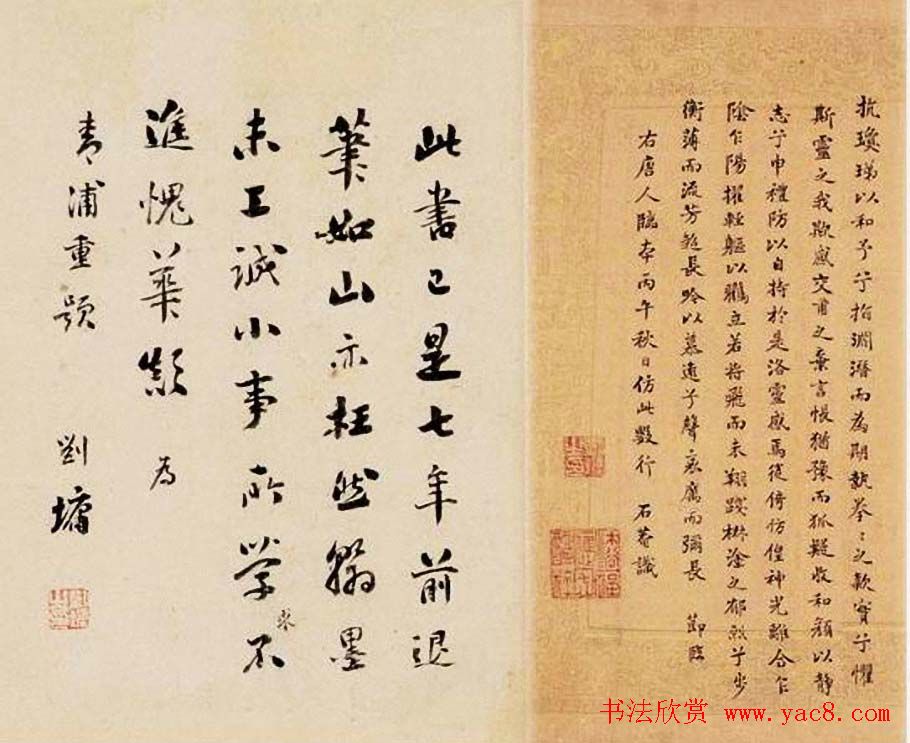 抗瓊珶以和予兮指淵潛而為期執拳〻之款實兮懼
斯靈之我欺感交甫之棄言悵猶豫而狐疑收和顏以靜
志兮申禮防以自持於是洛靈感焉徙倚仿偟神光離合乍
陰乍陽擢輕軀以鶴立若將飛而未翔踐椒塗之郁烈兮步
衡薄而流芳超長吟以慕遠兮聲哀厲而彌長 節臨
右唐人臨本丙午秋日仿此數行 石菴識
此書已是七年前退
筆如山亦枉然翰墨
未工誠小事所學不
求
進愧華顛 為
青浦重題 劉墉
书法欣赏 www.yac8.com